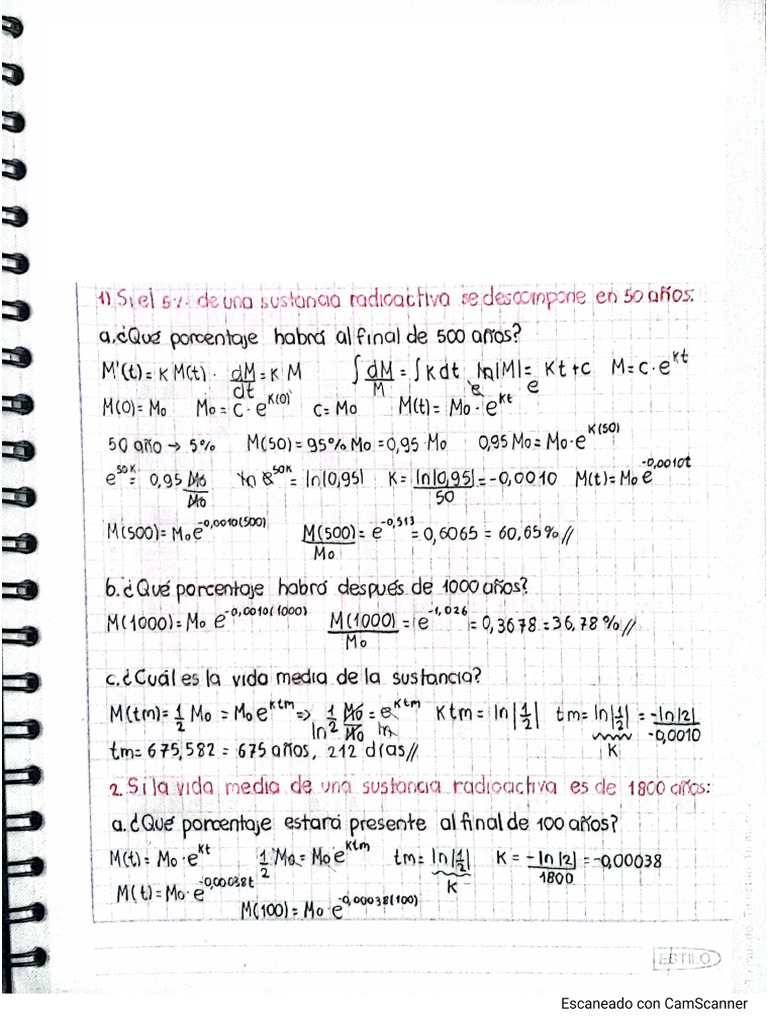 1) Si el 5% de una sustancia radioactiva se descompone en 50 años:
a. ¿Qué porcentaje habrá al final de 500 años?
M'(t) = K M(t) · dM/dt = K M ∫ dM/M = ∫ K dt ln|M| = Kt + C M = C · e^Kt
M(0) = Mo Mo = C · e^K(0) C = Mo M(t) = Mo · e^Kt
50 año → 5% M(50) = 95% Mo = 0,95 · Mo 0,95 Mo = Mo · e^K(50)
e^50K = 0,95 Mo/Mo ln e^50K = ln|0,95| K = ln|0,95|/50 = -0,0010 M(t) = Mo e^-0,0010t
M(500) = Mo e^-0,0010(500) M(500)/Mo = e^-0,513 = 0,6065 = 60,65% //
b. ¿Qué porcentaje habrá después de 1000 años?
M(1000) = Mo e^-0,0010(1000) M(1000)/Mo = e^-1,026 = 0,3678 = 36,78% //
c. ¿Cuál es la vida media de la sustancia?
M(tm) = 1/2 Mo = Mo e^Ktm => ln 1/2 Mo/Mo = e^Ktm ln Ktm = ln|1/2| tm = ln|1/2|/K = -ln|2|/-0,0010
tm = 675,582 = 675 años, 212 días //
2. Si la vida media de una sustancia radioactiva es de 1800 años:
a. ¿Qué porcentaje estará presente al final de 100 años?
M(t) = Mo · e^Kt 1/2 Mo = Mo e^Ktm tm = ln|1/2|/K K = -ln|2|/1800 = -0,00038
M(t) = Mo · e^-0,00038t
M(100) = Mo · e^-0,00038(100)
ESTILO
Escaneado con CamScanner